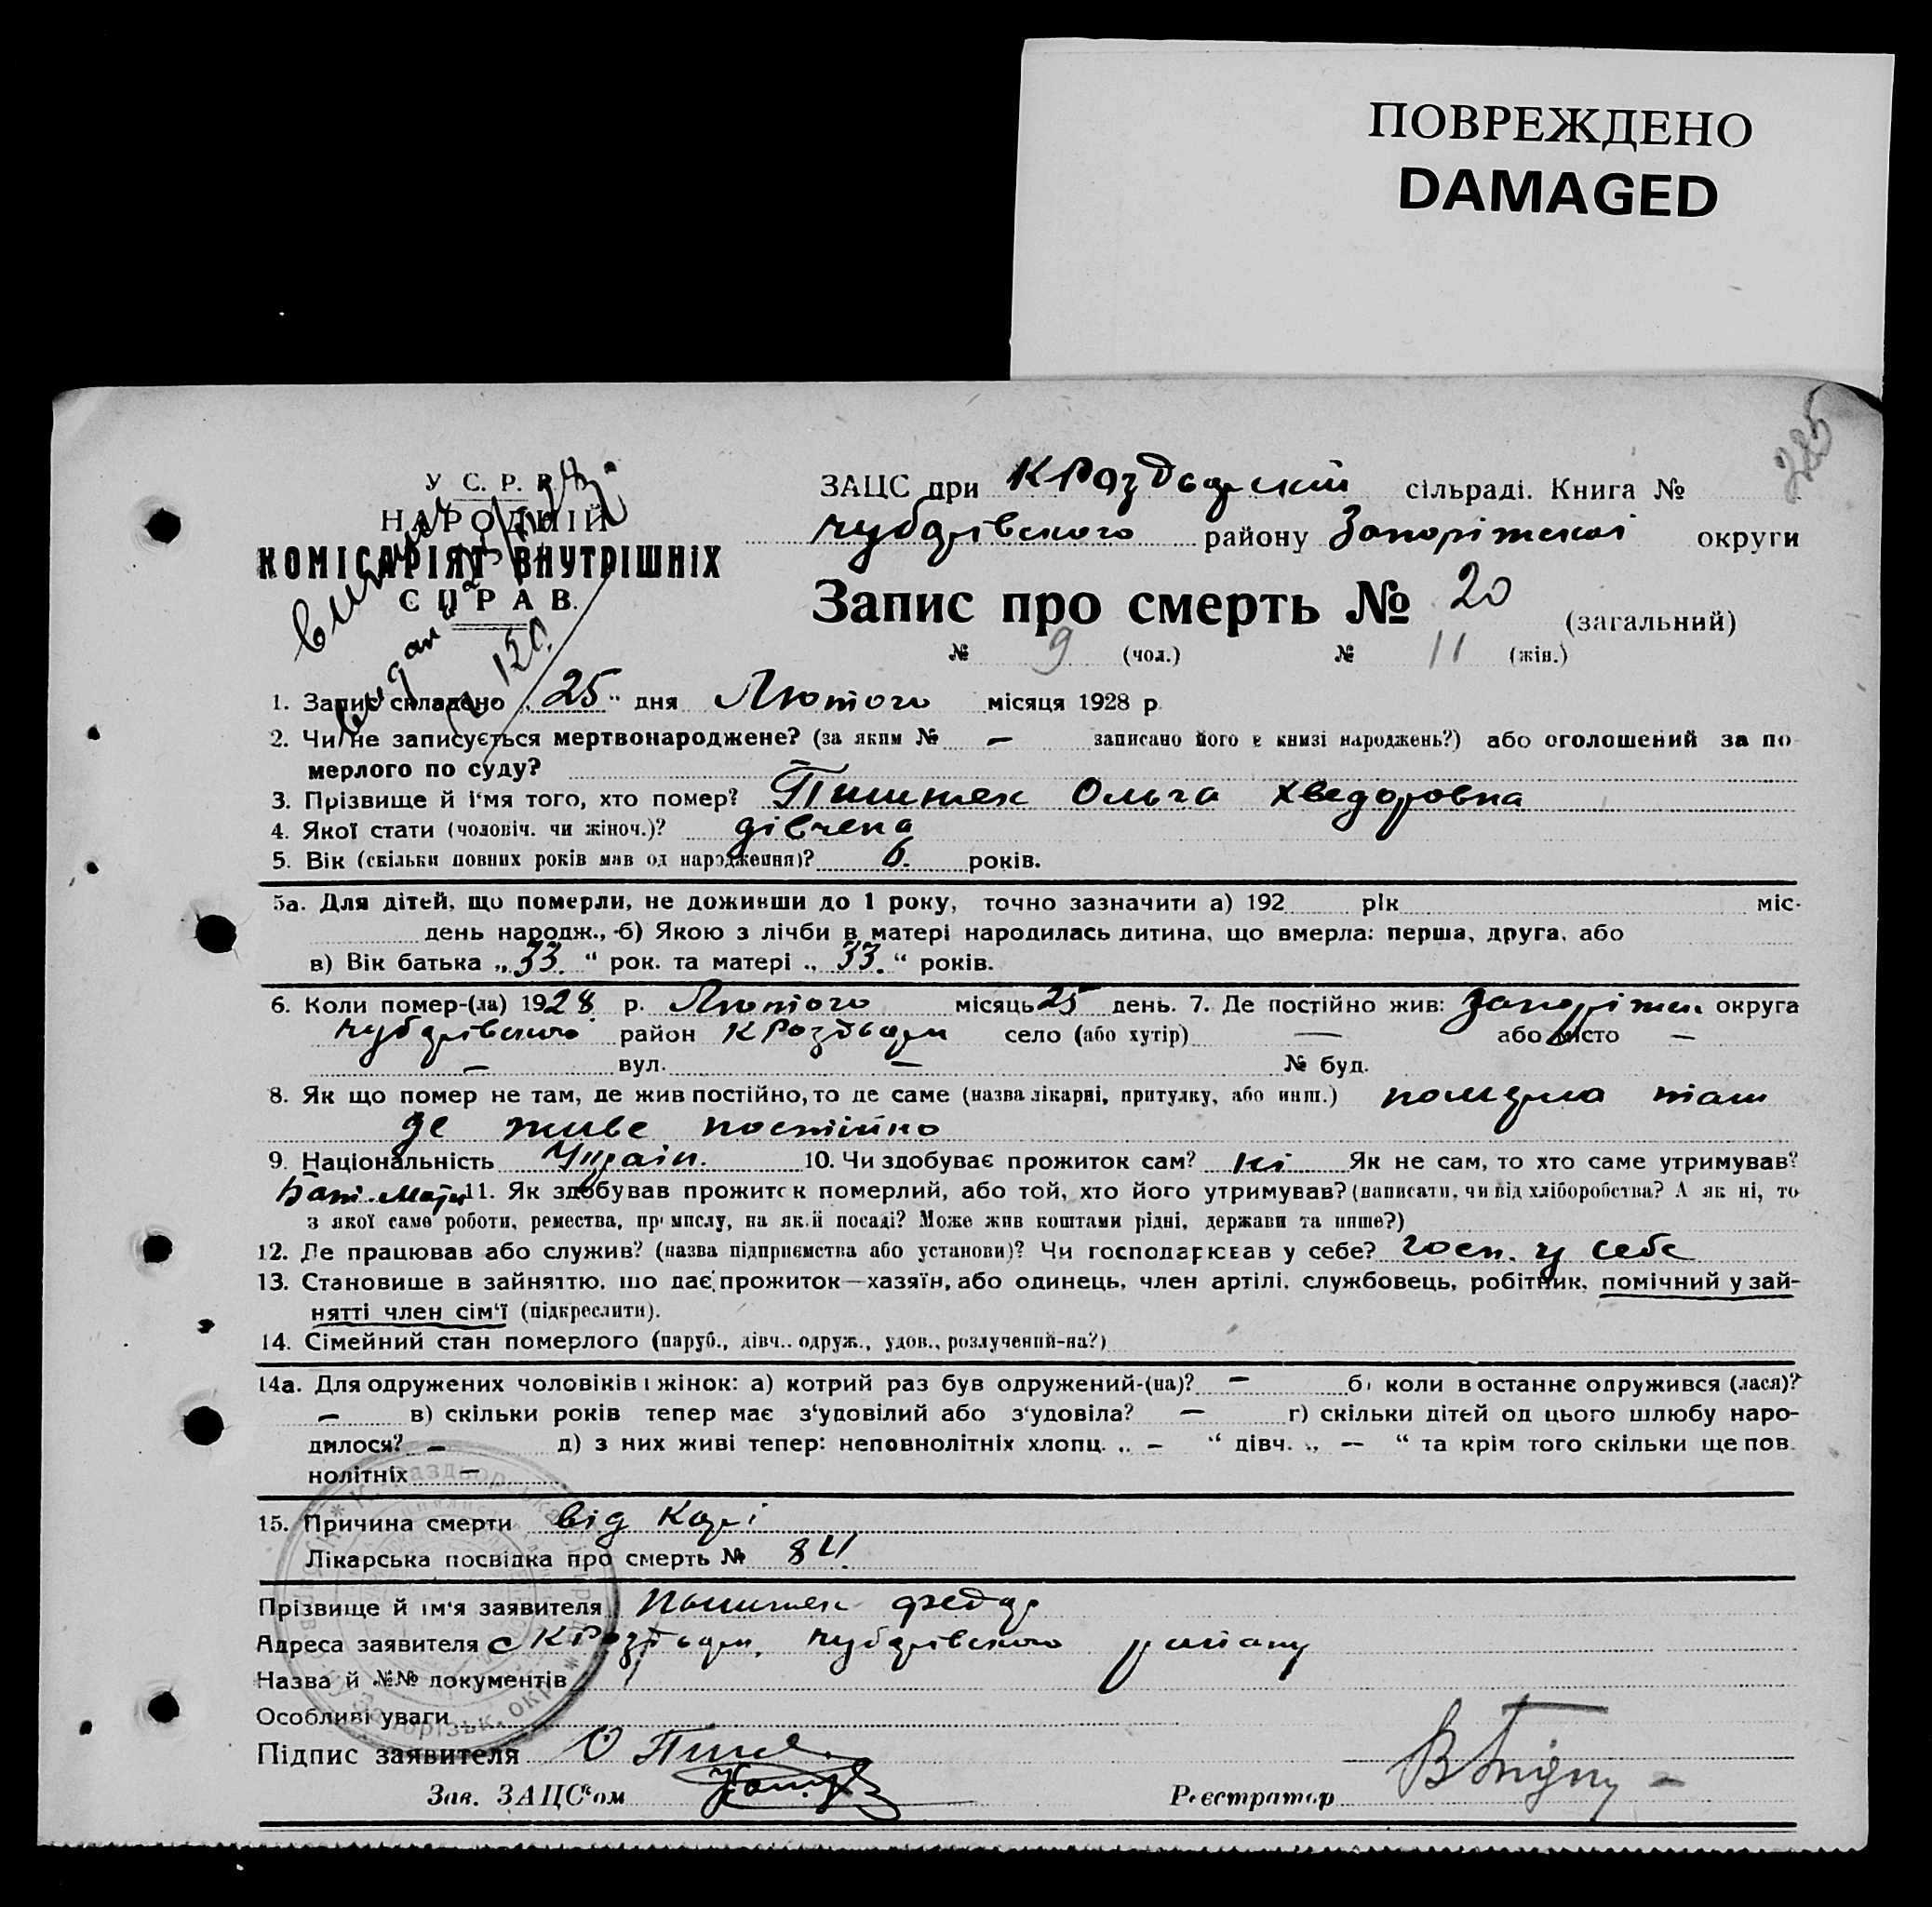 ПОВРЕЖДЕНО
DAMAGED
285
У. С. Р. Р.
НАРОДНІЙ
КОМІСАРІЯТ ВНУТРІШНІХ
СПРАВ.
150
ЗАЦС при К Роздорський сільраді. Книга №
Чубарівского району Запоріжскої округи
Запис про смерть № 20 (загальний)
№ 9 (чол.) № 11 (жін.)
1. Запис складено „25“ дня Лютого місяця 1928 р.
2. Чи не записується мертвонароджене? (за яким № — записано його в книзі народжень?) або оголошений за по-
мерлого по суду?
3. Прізвище й ім'я того, хто помер? Ольга Хведоровна
4. Якої стати (чоловіч. чи жіноч.)? дівчена
5. Вік (скільки повних років мав од народження)? 6. років.
5а. Для дітей, що померли, не доживши до 1 року, точно зазначити а) 192 рік міс-
день народж., б) Якою з лічби в матері народилась дитина, що вмерла: перша, друга, або
в) Вік батька „33.“ рок. та матері „33.“ років.
6. Коли помер-(ла) 1928 р. Лютого місяць 25 день. 7. Де постійно жив: Запоріжск округа
Чубарівского район К Роздори село (або хутір) — або місто —
— вул. — № буд.
8. Як що помер не там, де жив постійно, то де саме (назва лікарні, притулку, або инш.) померла там
де живе постійно
9. Національність Україн. 10. Чи здобуває прожиток сам? Ні Як не сам, то хто саме утримував?
Бат. Мати 11. Як здобував прожиток померлий, або той, хто його утримував? (написати, чи від хліборобства? А як ні, то
з якої саме роботи, ремества, промислу, на якій посаді? Може жив коштами рідні, держави та инше?)
12. Де працював або служив? (назва підприємства або установи)? Чи господарював у себе? Госп. у себе
13. Становище в зайняттю, що дає прожиток—хазяїн, або одинець, член артілі, службовець, робітник, помічний у зай-
нятті член сім'ї (підкреслити).
14. Сімейний стан померлого (паруб., дівч., одруж., удов., розлучений-на?)
14а. Для одружених чоловіків і жінок: а) котрий раз був одружений-(на)? — б) коли в останнє одружився (лася)?
— в) скільки років тепер має з'удовілий або з'удовіла? — г) скільки дітей од цього шлюбу наро-
дилося? — д) з них живі тепер: неповнолітніх хлопц. „ — “ дівч. „ — “ та крім того скільки ще пов.
нолітніх —
15. Причина смерти від Корі
Лікарська посвідка про смерть № 84
Прізвище й ім'я заявителя Федор
Адреса заявителя с К Роздори, Чубарівского району
Назва й №№ документів
Особливі уваги
Підпис заявителя
Зав. ЗАЦС'ом Реєстратор